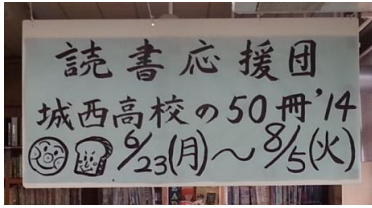 読書応援団
城西高校の50冊'14
6/23(月)～8/5(火)